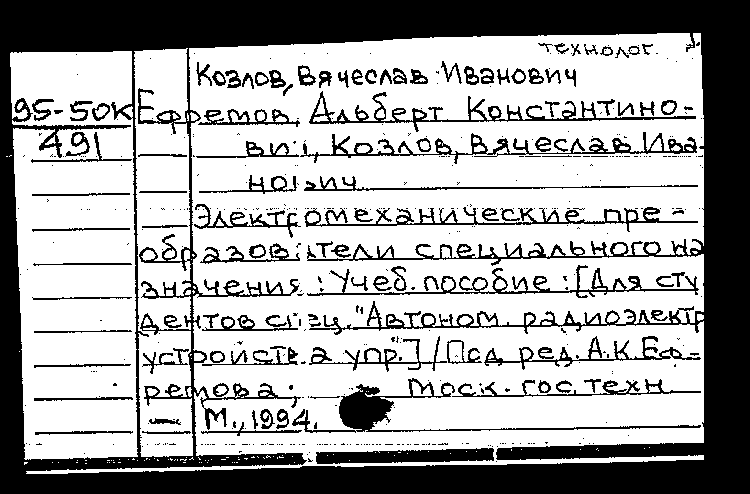 технолог.
Козлов, Вячеслав Иванович
95-50к Ефремов, Альберт Константино-
491 вич, Козлов, Вячеслав Ива-
нович
Электромеханические пре-
образователи специального на
значения : Учеб. пособие : [Для сту
дентов спец. "Автоном. радиоэлектр
устройства упр."] / Под ред. А.К. Еф-
ремова; Моск. гос. техн.
— М., 1994.